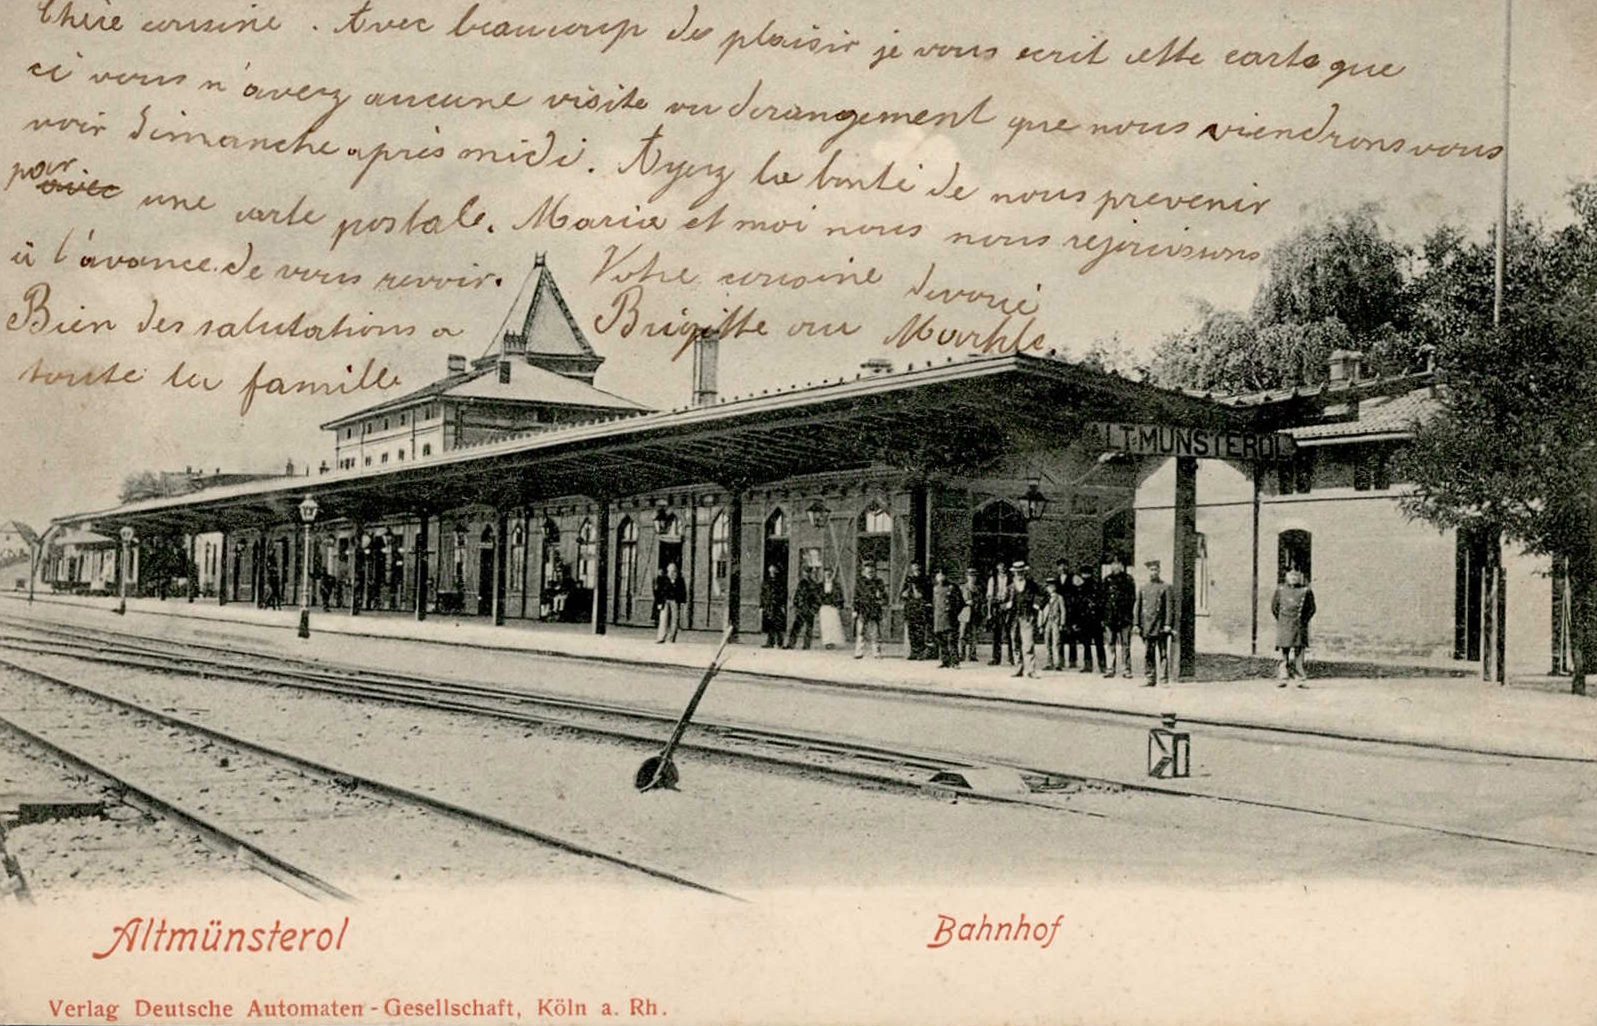 Chère cousine. Avec beaucoup de plaisir je vous ecrit cette carte que
ci vous n'avez aucune visite ou derangement que nous viendrons vous
voir dimanche après midi. Ayez la bonté de nous prevenir
par avec une carte postale. Maria et moi nous nous rejouissons
à l'avance de vous revoir. Votre cousine devoué
Bien des salutations a Brigitte
toute la famille
ALTMÜNSTEROL
Altmünsterol
Bahnhof
Verlag Deutsche Automaten-Gesellschaft, Köln a. Rh.